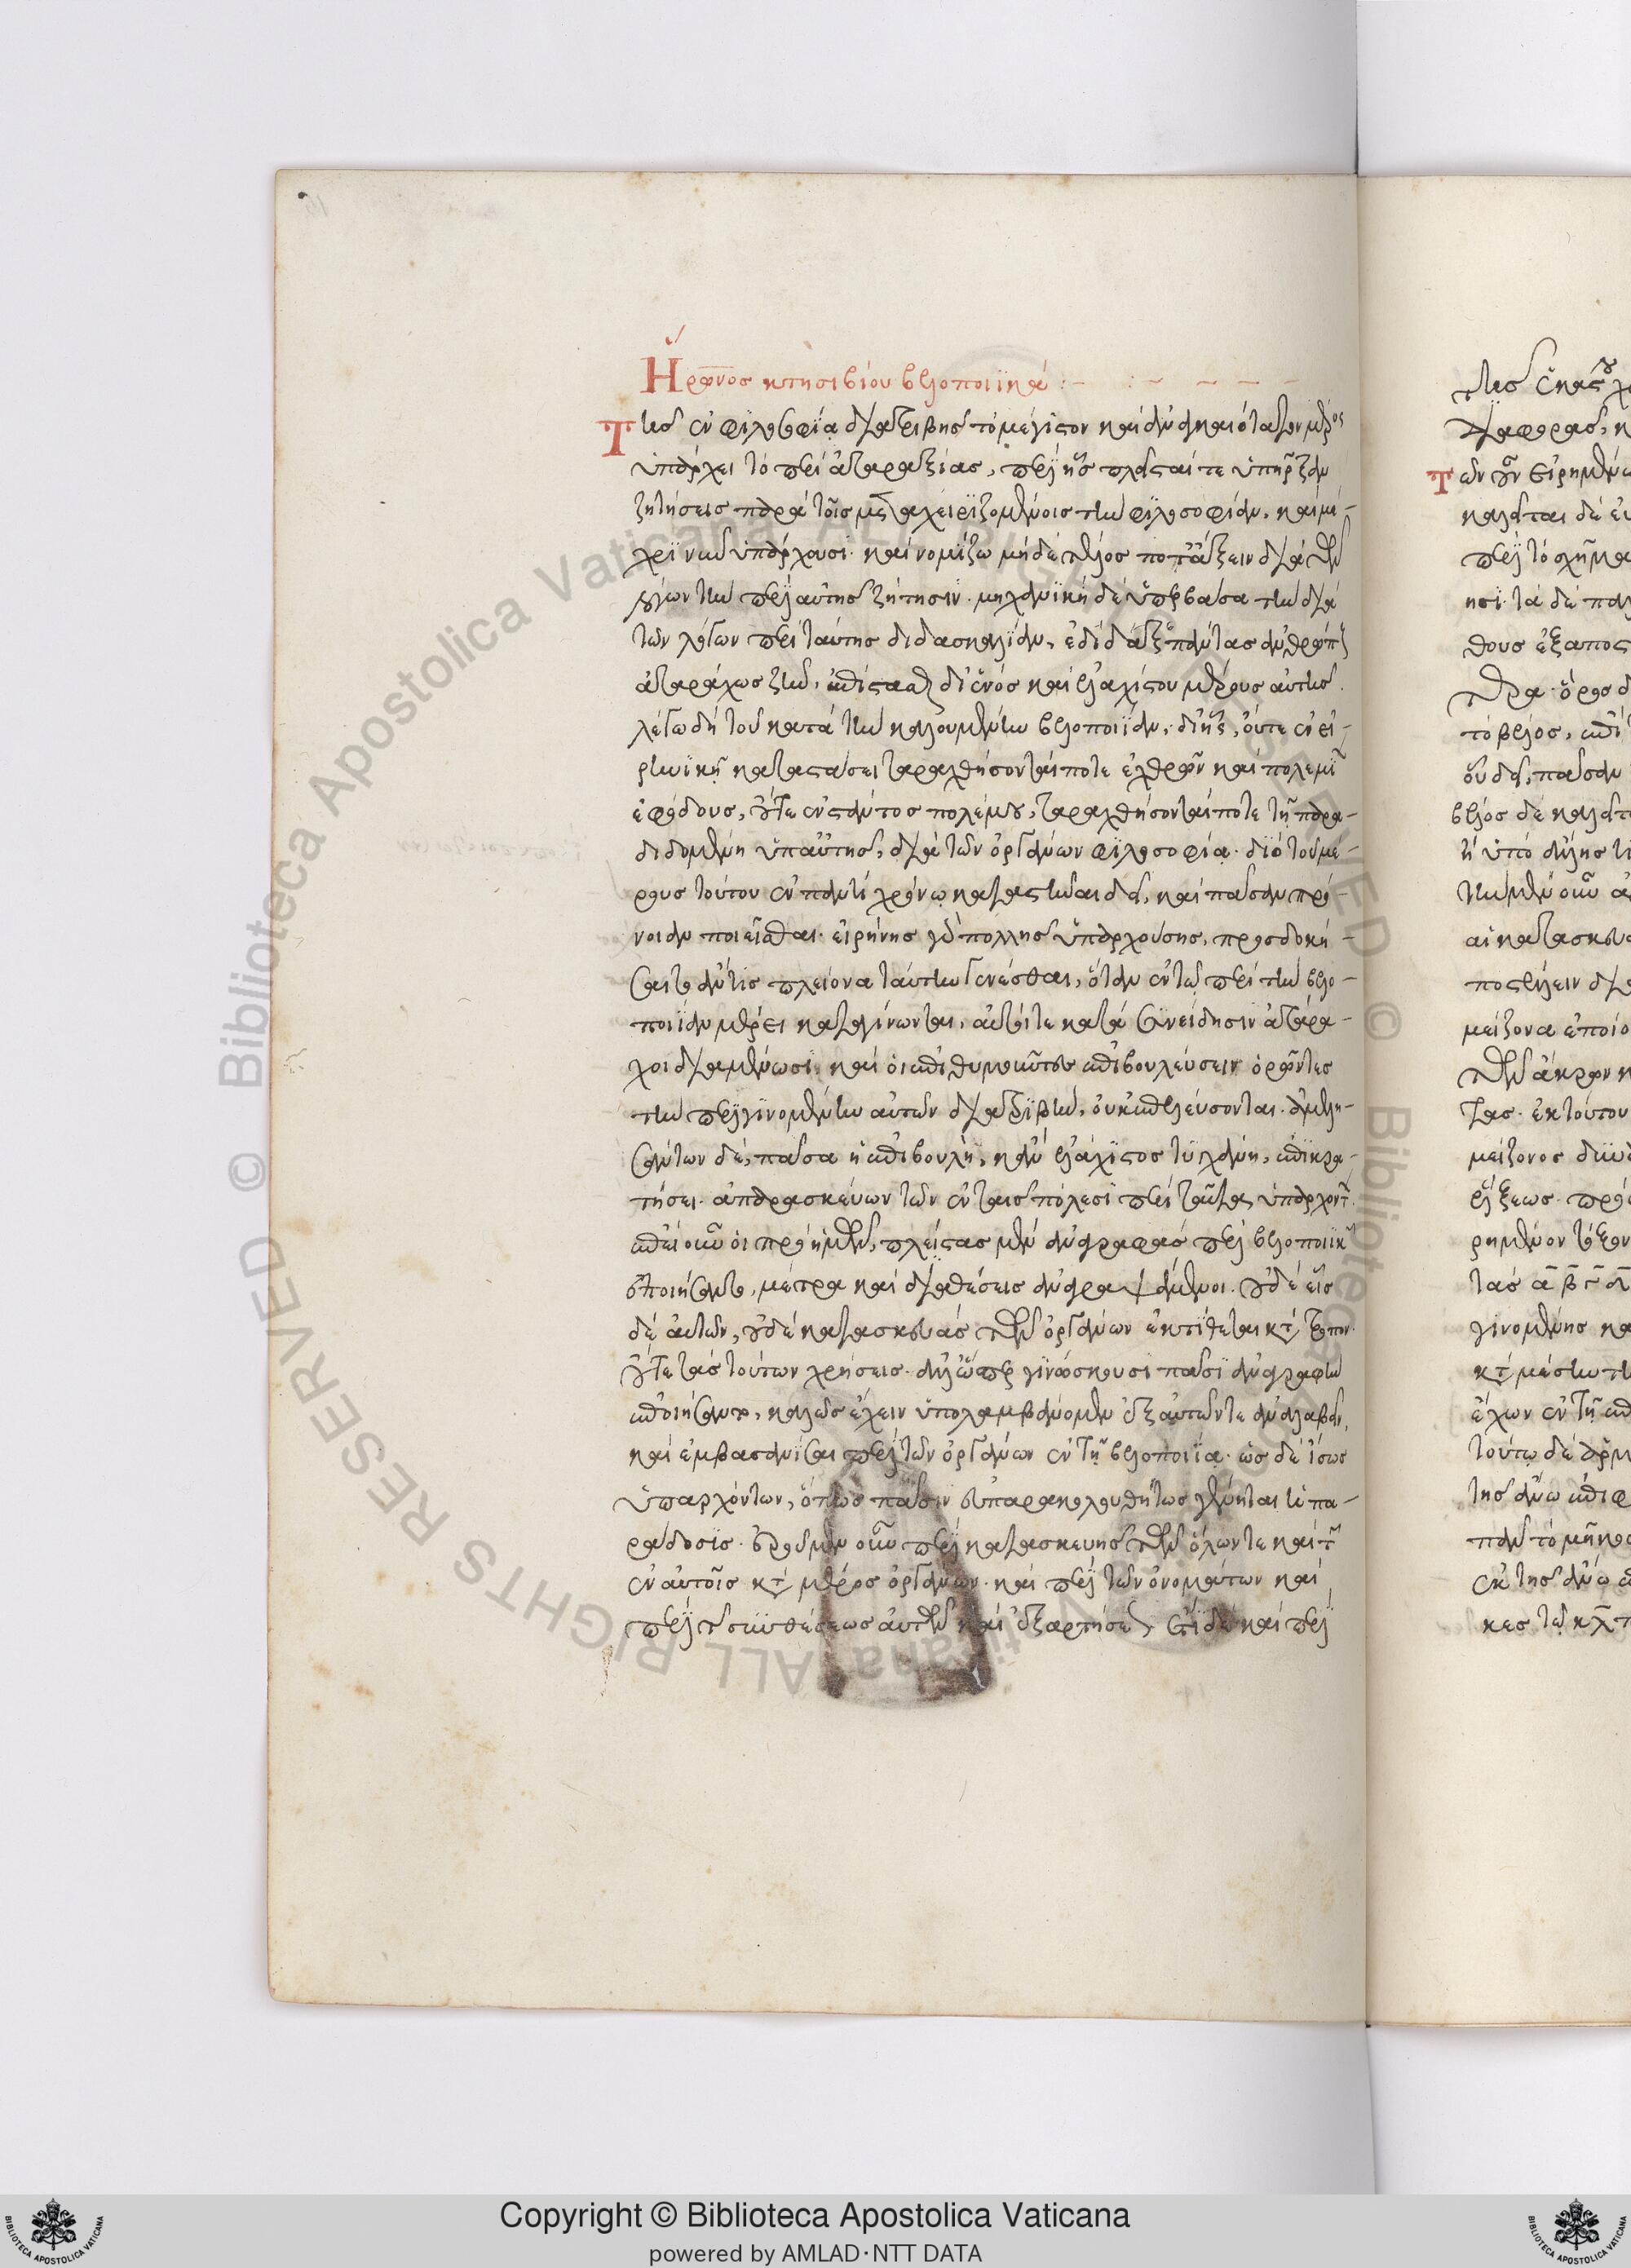 Ἥρωνος κτησιβίου βελοποιϊκά :-
Τῆς ἐν φιλοσοφία διατριβῆς τὸ μέγιστον καὶ ἀναγκαιότατον μέρος
ὑπάρχει τὸ περὶ ἀταραξίας, περὶ ἧς πλεῖσταί τε ὑπῆρξαν
ζητήσεις παρὰ τοῖς μεταχειριζομένοις τὴν φιλοσοφίαν, καὶ μέ-
χρι νῦν ὑπάρχουσι· καὶ νομίζω μηδὲ τέλος ποτὲ ἕξειν διὰ τῶν
λόγων τὴν περὶ αὐτῆς ζήτησιν. μηχανικὴ δὲ ὑπερβᾶσα τὴν διὰ
τῶν λόγων περὶ ταύτης διδασκαλίαν, ἐδίδαξε πάντας ἀνθρώπους
ἀταράχως ζῆν, ἐπίστασθαι δι' ἑνὸς καὶ ἐλαχίστου μέρους αὐτῆς.
λέγω δὴ τοῦ κατὰ τὴν καλουμένην βελοποιΐαν, δι' ἧς, οὔτε ἐν εἰ-
ρηνικῇ καταστάσει ταραχθήσονταί ποτε ἐχθρῶν καὶ πολεμίων
ἐφόδους, οὔτε ἐνστάντος πολέμου, ταραχθήσονταί ποτε τῇ παρα-
διδομένη ὑπ' αὐτῆς, διὰ τῶν ὀργάνων φιλοσοφία. διὸ τοῦ μέ-
ρους τούτου ἐν παντὶ χρόνῳ κατασтῆναι δεῖ, καὶ πᾶσαν πρό-
νοιαν ποιεῖσθαι. εἰρήνης γὰρ πολλῆς ὑπαρχούσης, προσδοκή-
σαιτο ἄν τις πλείονα ταύτην γενέσθαι, ὅταν ἐν τῷ περὶ τὴν βελο-
ποιΐαν μέρει καταγίνωνται, αὐτοί τε κατὰ συνείδησιν ἀτάρα-
χοι διαμένωσι, καὶ οἱ ἐπιθυμοῦντες ἐπιβουλεύσειν ὁρῶντες
τὴν περιγινομένην αὐτῶν διατριβὴν, οὐκ ἐπελεύσονται. ἀμελη-
σάντων δὲ, πᾶσα ἡ ἐπιβουλὴ, κἂν ἐλάχιστος τυγχάνη, ἐπικρα-
τήσει. ἀπαρασκεύων τῶν ἐν ταῖς πόλεσι περὶ ταῦτα ὑπαρχόντων.
ἐπεὶ οὖν οἱ πρὸ ἡμῶν, πλείστας μὲν ἀναγραφὰς περὶ βελοποιικῶν
ἐποιήσαντο, μέτρα καὶ διαθέσεις ἀναγραψάμενοι. οὐδὲ εἷς
δὲ αὐτῶν, οὐδὲ κατασκευὰς τῶν ὀργάνων ἐκτίθεται κατὰ τρόπον.
οὔτε τὰς τούτων χρήσεις. ἀλλ' ὥσπερ γινώσκουσι πᾶσι ἀναγραφὴν
ἐποιήσαντο, καλῶς ἔχειν ὑπολαμβάνομεν ἐξ αὐτῶν τε ἀναλαβεῖν,
καὶ ἐμφανίσαι περὶ τῶν ὀργάνων ἐν τῇ βελοποιΐα. ὡς δὲ ἴσως
ὑπαρχόντων, ὅπως πᾶσιν εὐπαρακολουθήτως γένηται ἡ πα-
ράδοσις. ἐροῦμεν οὖν περὶ κατασκευῆς τῶν ὅλων τε καὶ τῶν
ἐν αὐτοῖς κατὰ μέρος ὀργάνων. καὶ περὶ τῶν ὀνομάτων καὶ
περὶ τῆς συνθέσεως αὐτῶν καὶ ἐξαρτήσεως, ἔτι δὲ καὶ περὶ
Copyright © Biblioteca Apostolica Vaticana
powered by AMLAD·NTT DATA